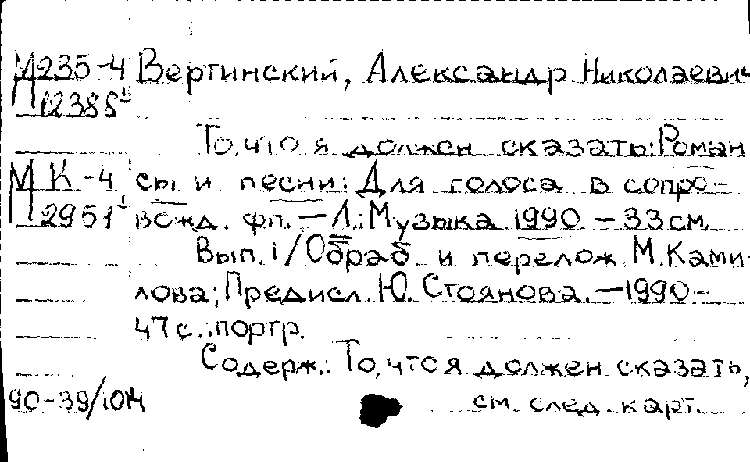 М235-4 Вертинский, Александр Николаевич
П12388
То, что я должен сказать: Роман
М К-4 сы и песни: Для голоса в сопро-
П2951 вожд. фп. — Л.: Музыка 1990 — 33 см.
Вып. 1/Обраб. и перелож. М. Ками-
лова; Предисл. Ю. Стоянова. — 1990 —
47 с.: портр.
Содерж.: То, что я должен сказать,
90-39/ см. след. карт.